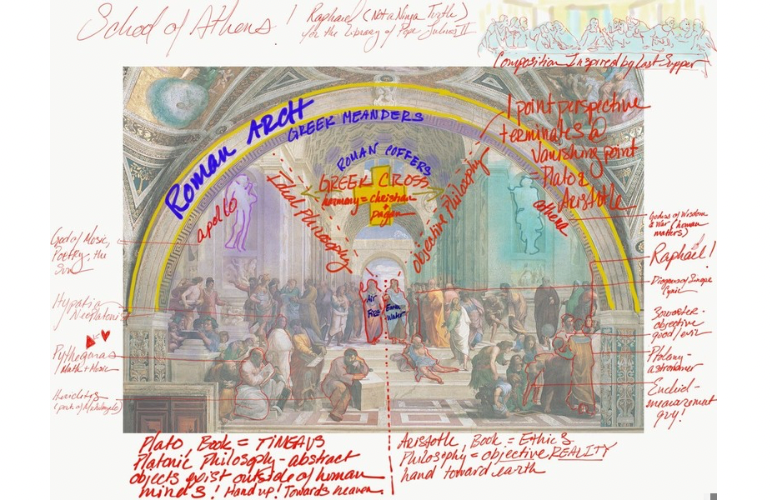 School of Athens!
Raphael (Not a Ninja Turtle)
for the Library of Pope Julius II
Composition Inspired by Last Supper
Roman ARCH
GREEK MEANDERS
ROMAN COFFERS
GREEK CROSS
harmony = christian
pagan
1 point perspective
terminates @
Vanishing point
= Plato &
Aristotle
apollo
Ideal Philosophy
objective Philosophy
athena
Air
Fire
Earth
Water
God of Music,
Poetry, the
Sun
Hypatia
Pythagoras
Math + Music
Goddess of Wisdom
& War (human
matters)
Raphael!
Diogenes
Cynic
objective
good/evil
Ptolemy -
astronomer
Euclid -
measurement
guy!
Plato, Book = TIMEAUS
Platonic Philosophy - abstract
objects exist outside of human
minds! Hand up! Towards heaven
Aristotle, Book = Ethics
Philosophy = objective REALITY
hand toward earth